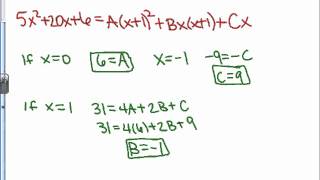 5x²+20x+6=A(x+1)²+Bx(x+1)+Cx
if x=0 6=A x=-1 -9=-C
C=9
if x=1 31=4A+2B+C
31=4(6)+2B+9
B=-1